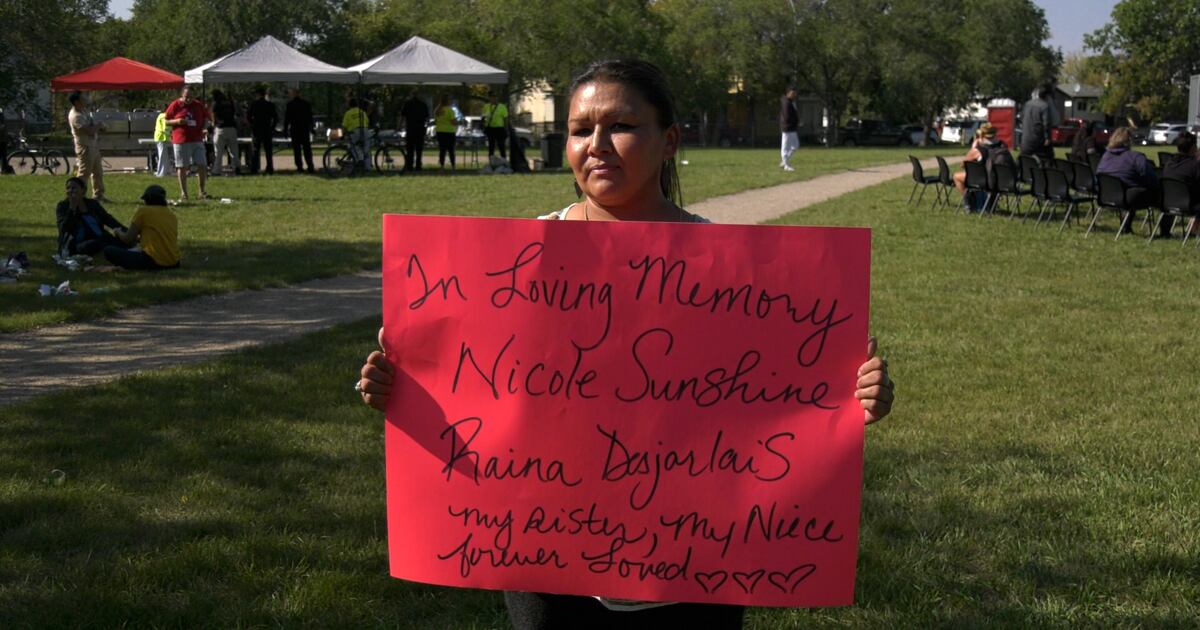 In Loving Memory
Nicole Sunshine
Raina Desjarlais
my sister, my Niece
forever Loved